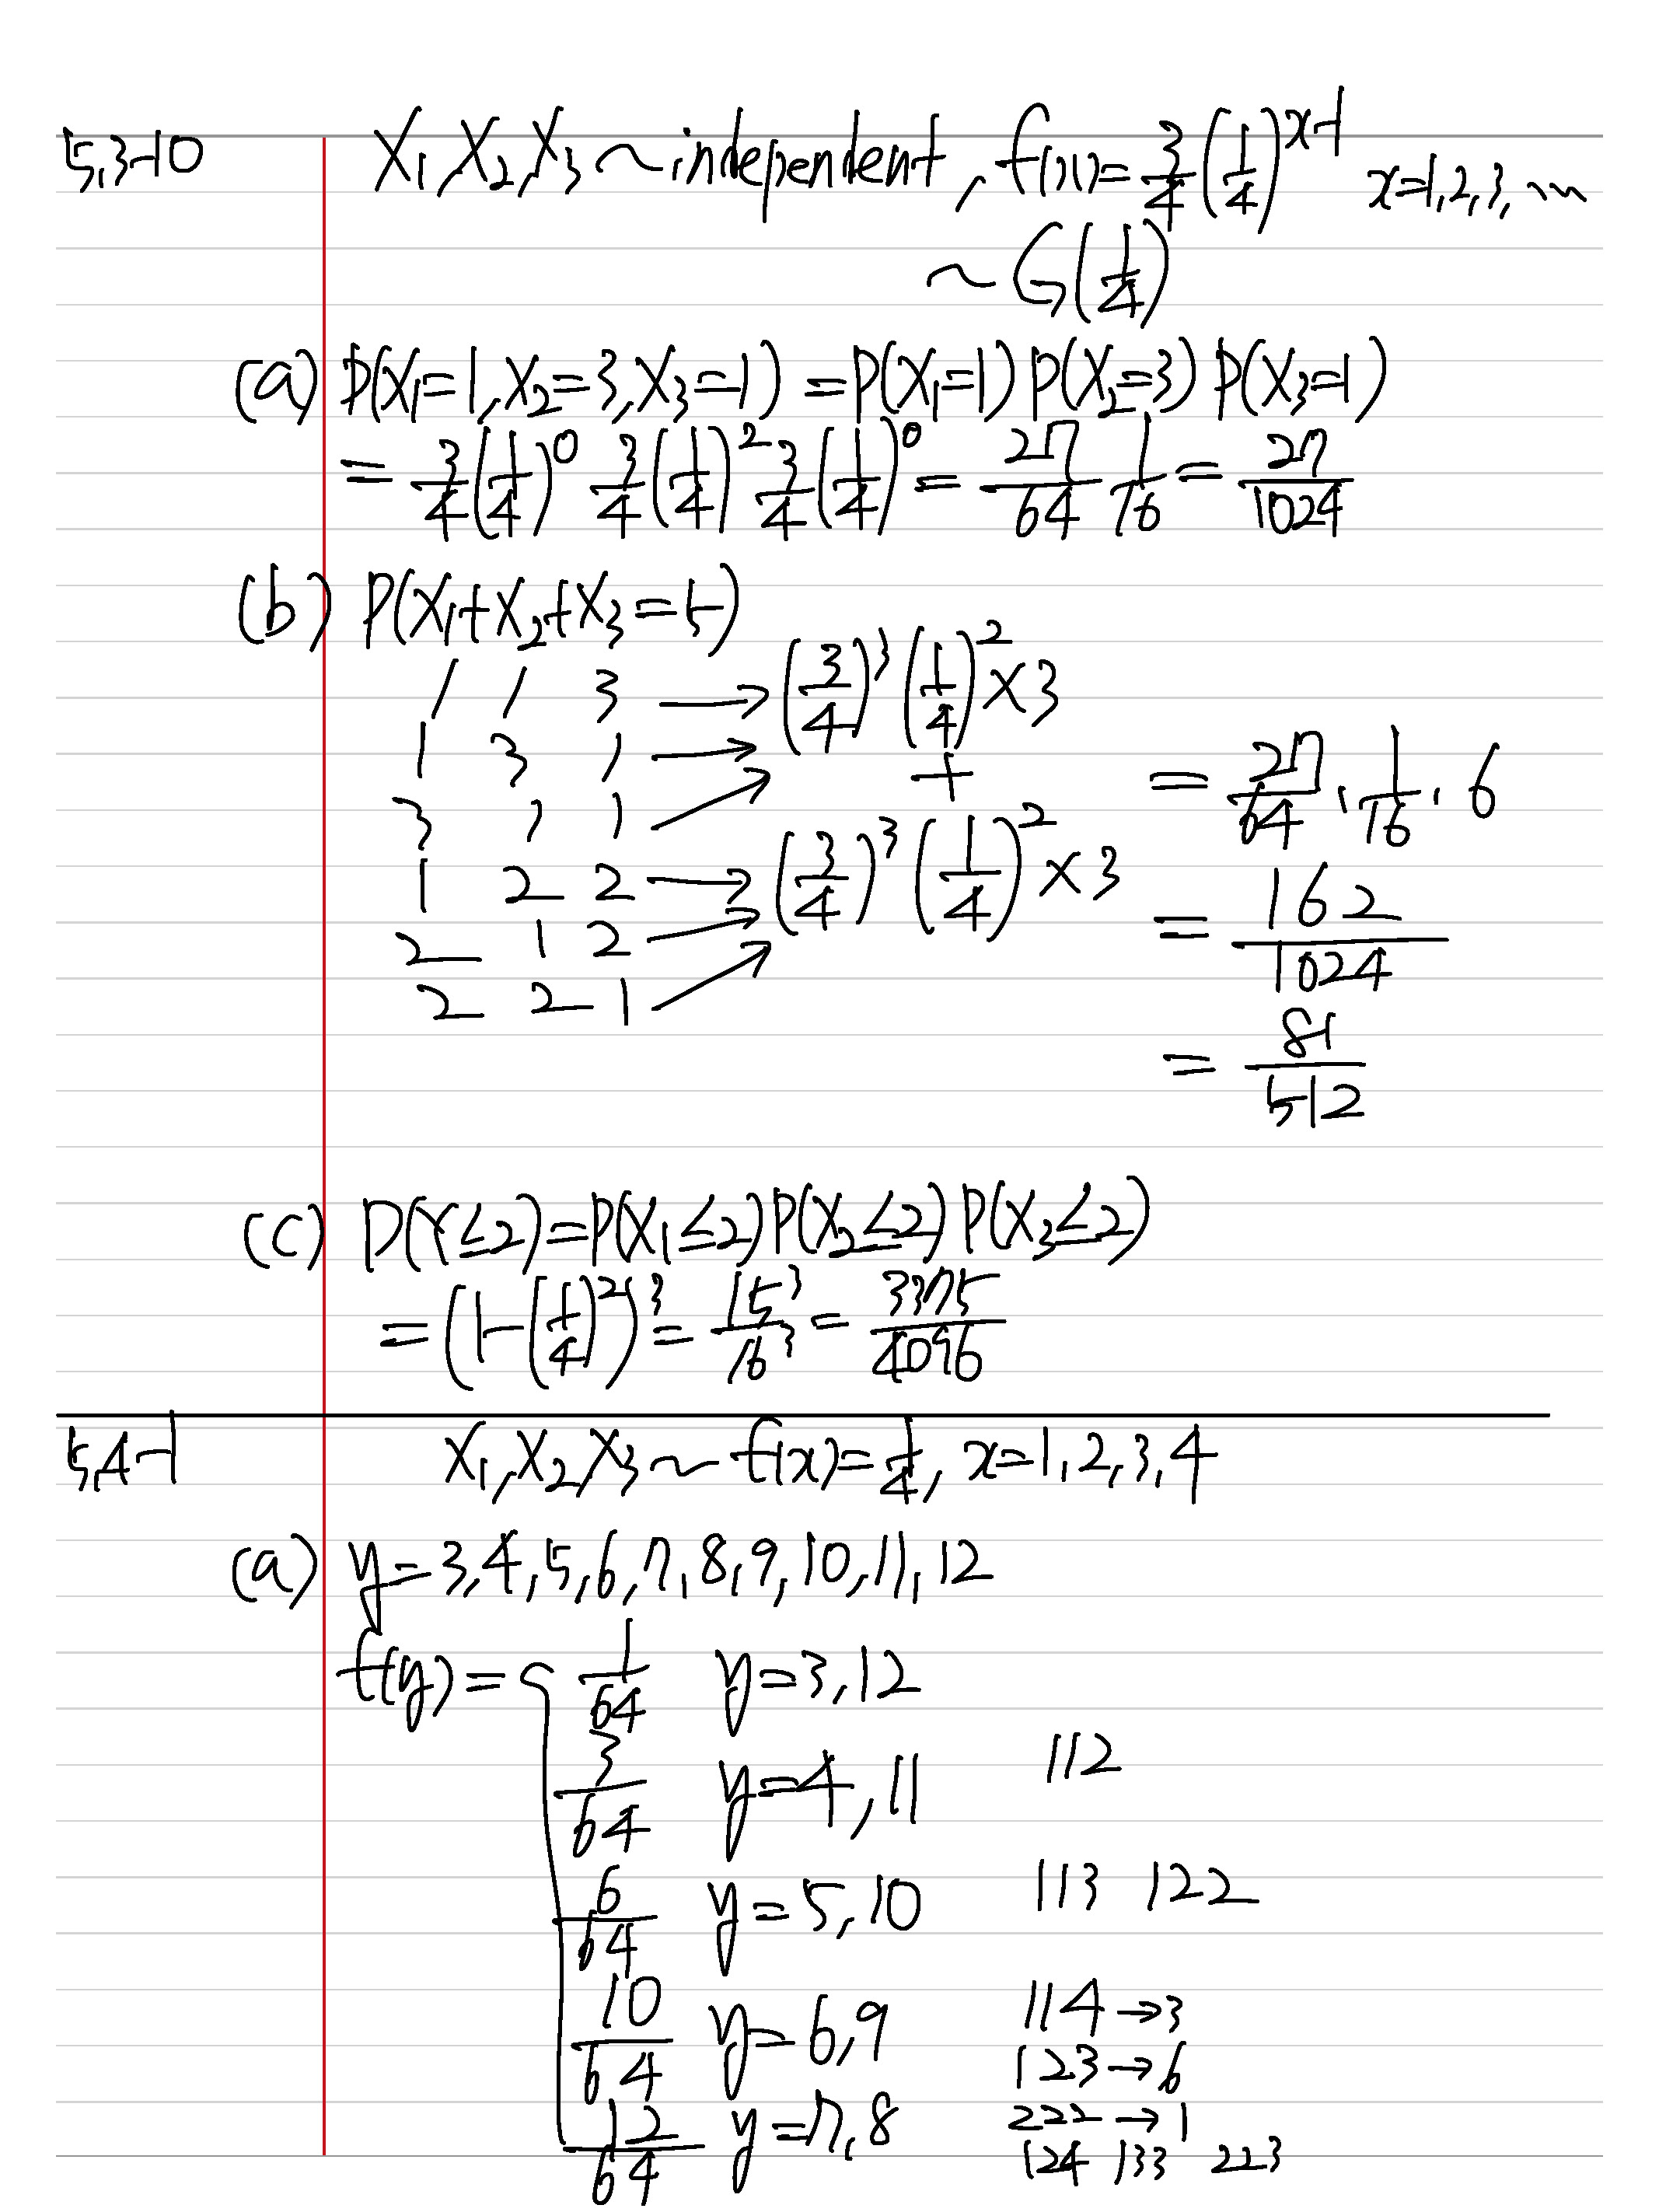 5.3-10 X₁, X₂, X₃ ~ independent, f(x) = 3/4 (1/4)^(x-1) x=1,2,3, ...
~ G(1/4)
(a) P(X₁=1, X₂=3, X₃=1) = P(X₁=1) P(X₂=3) P(X₃=1)
= 3/4 (1/4)^0 3/4 (1/4)^2 3/4 (1/4)^0 = 27/64 1/16 = 27/1024
(b) P(X₁+X₂+X₃=5)
1 1 3 → (3/4)^3 (1/4)^2 × 3
1 3 1 →
+
3 1 1 →
1 2 2 → (3/4)^3 (1/4)^2 × 3
2 1 2 →
2 2 1 →
= 27/64 · 1/16 · 6
= 162/1024
= 81/512
(c) P(Y≤2) = P(X₁≤2) P(X₂≤2) P(X₃≤2)
= (1-(1/4)^2)^3 = 15^3/16^3 = 3375/4096
5.4-1 X₁, X₂, X₃ ~ f(x) = 1/4, x=1,2,3,4
(a) y=3,4,5,6,7,8,9,10,11,12
f(y) = { 1/64 y=3,12
3/64 y=4,11 112
6/64 y=5,10 113 122
10/64 y=6,9 114→3
123→6
222→1
12/64 y=7,8 124 133 223